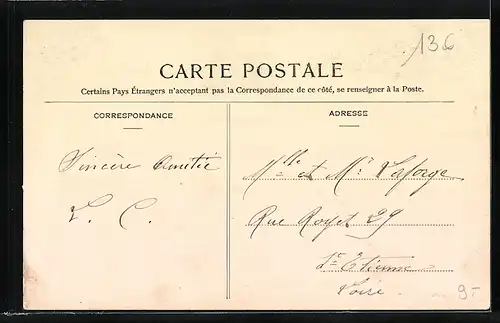 136
CARTE POSTALE
Certains Pays Étrangers n'acceptant pas la Correspondance de ce côté, se renseigner à la Poste.
CORRESPONDANCE
ADRESSE
Sincère Amitié
L. C.
Mlle et Mr Laforge
Rue Royet 29
St Etienne
Loire
9-